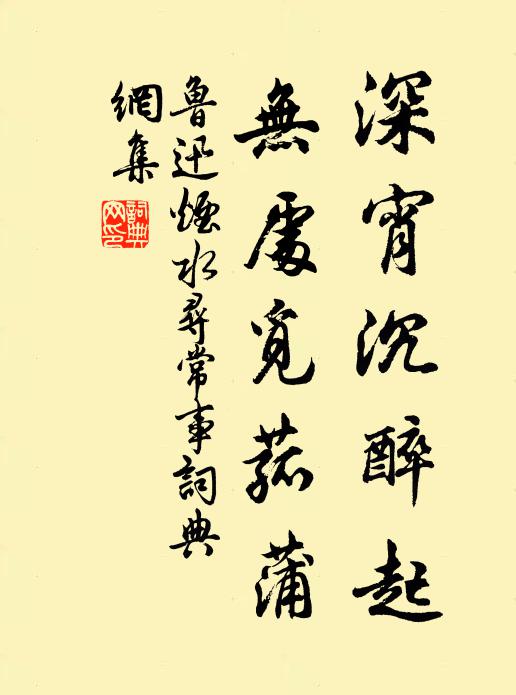 深宵沉醉起
無處覓菰蒲
魯迅煙水尋常事詞典
網集
詞典
网印